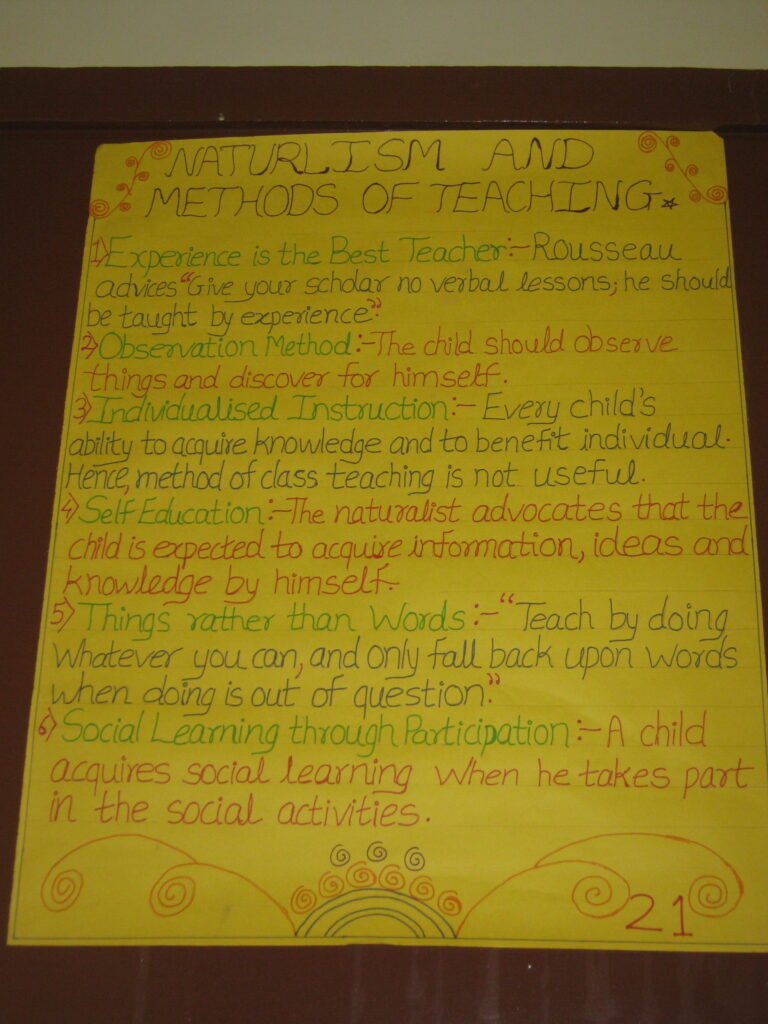 NATURLISM AND
METHODS OF TEACHING.
1) Experience is the Best Teacher:- Rousseau
advices "Give your scholar no verbal lessons; he should
be taught by experience"
2) Observation Method:- The child should observe
things and discover for himself.
3) Individualised Instruction:- Every child's
ability to acquire knowledge and to benefit individual.
Hence, method of class teaching is not useful.
4) Self Education:- The naturalist advocates that the
child is expected to acquire information, ideas and
knowledge by himself.
5) Things rather than Words:- "Teach by doing
whatever you can, and only fall back upon words
when doing is out of question."
6) Social Learning through Participation:- A child
acquires social learning when he takes part
in the social activities.
21